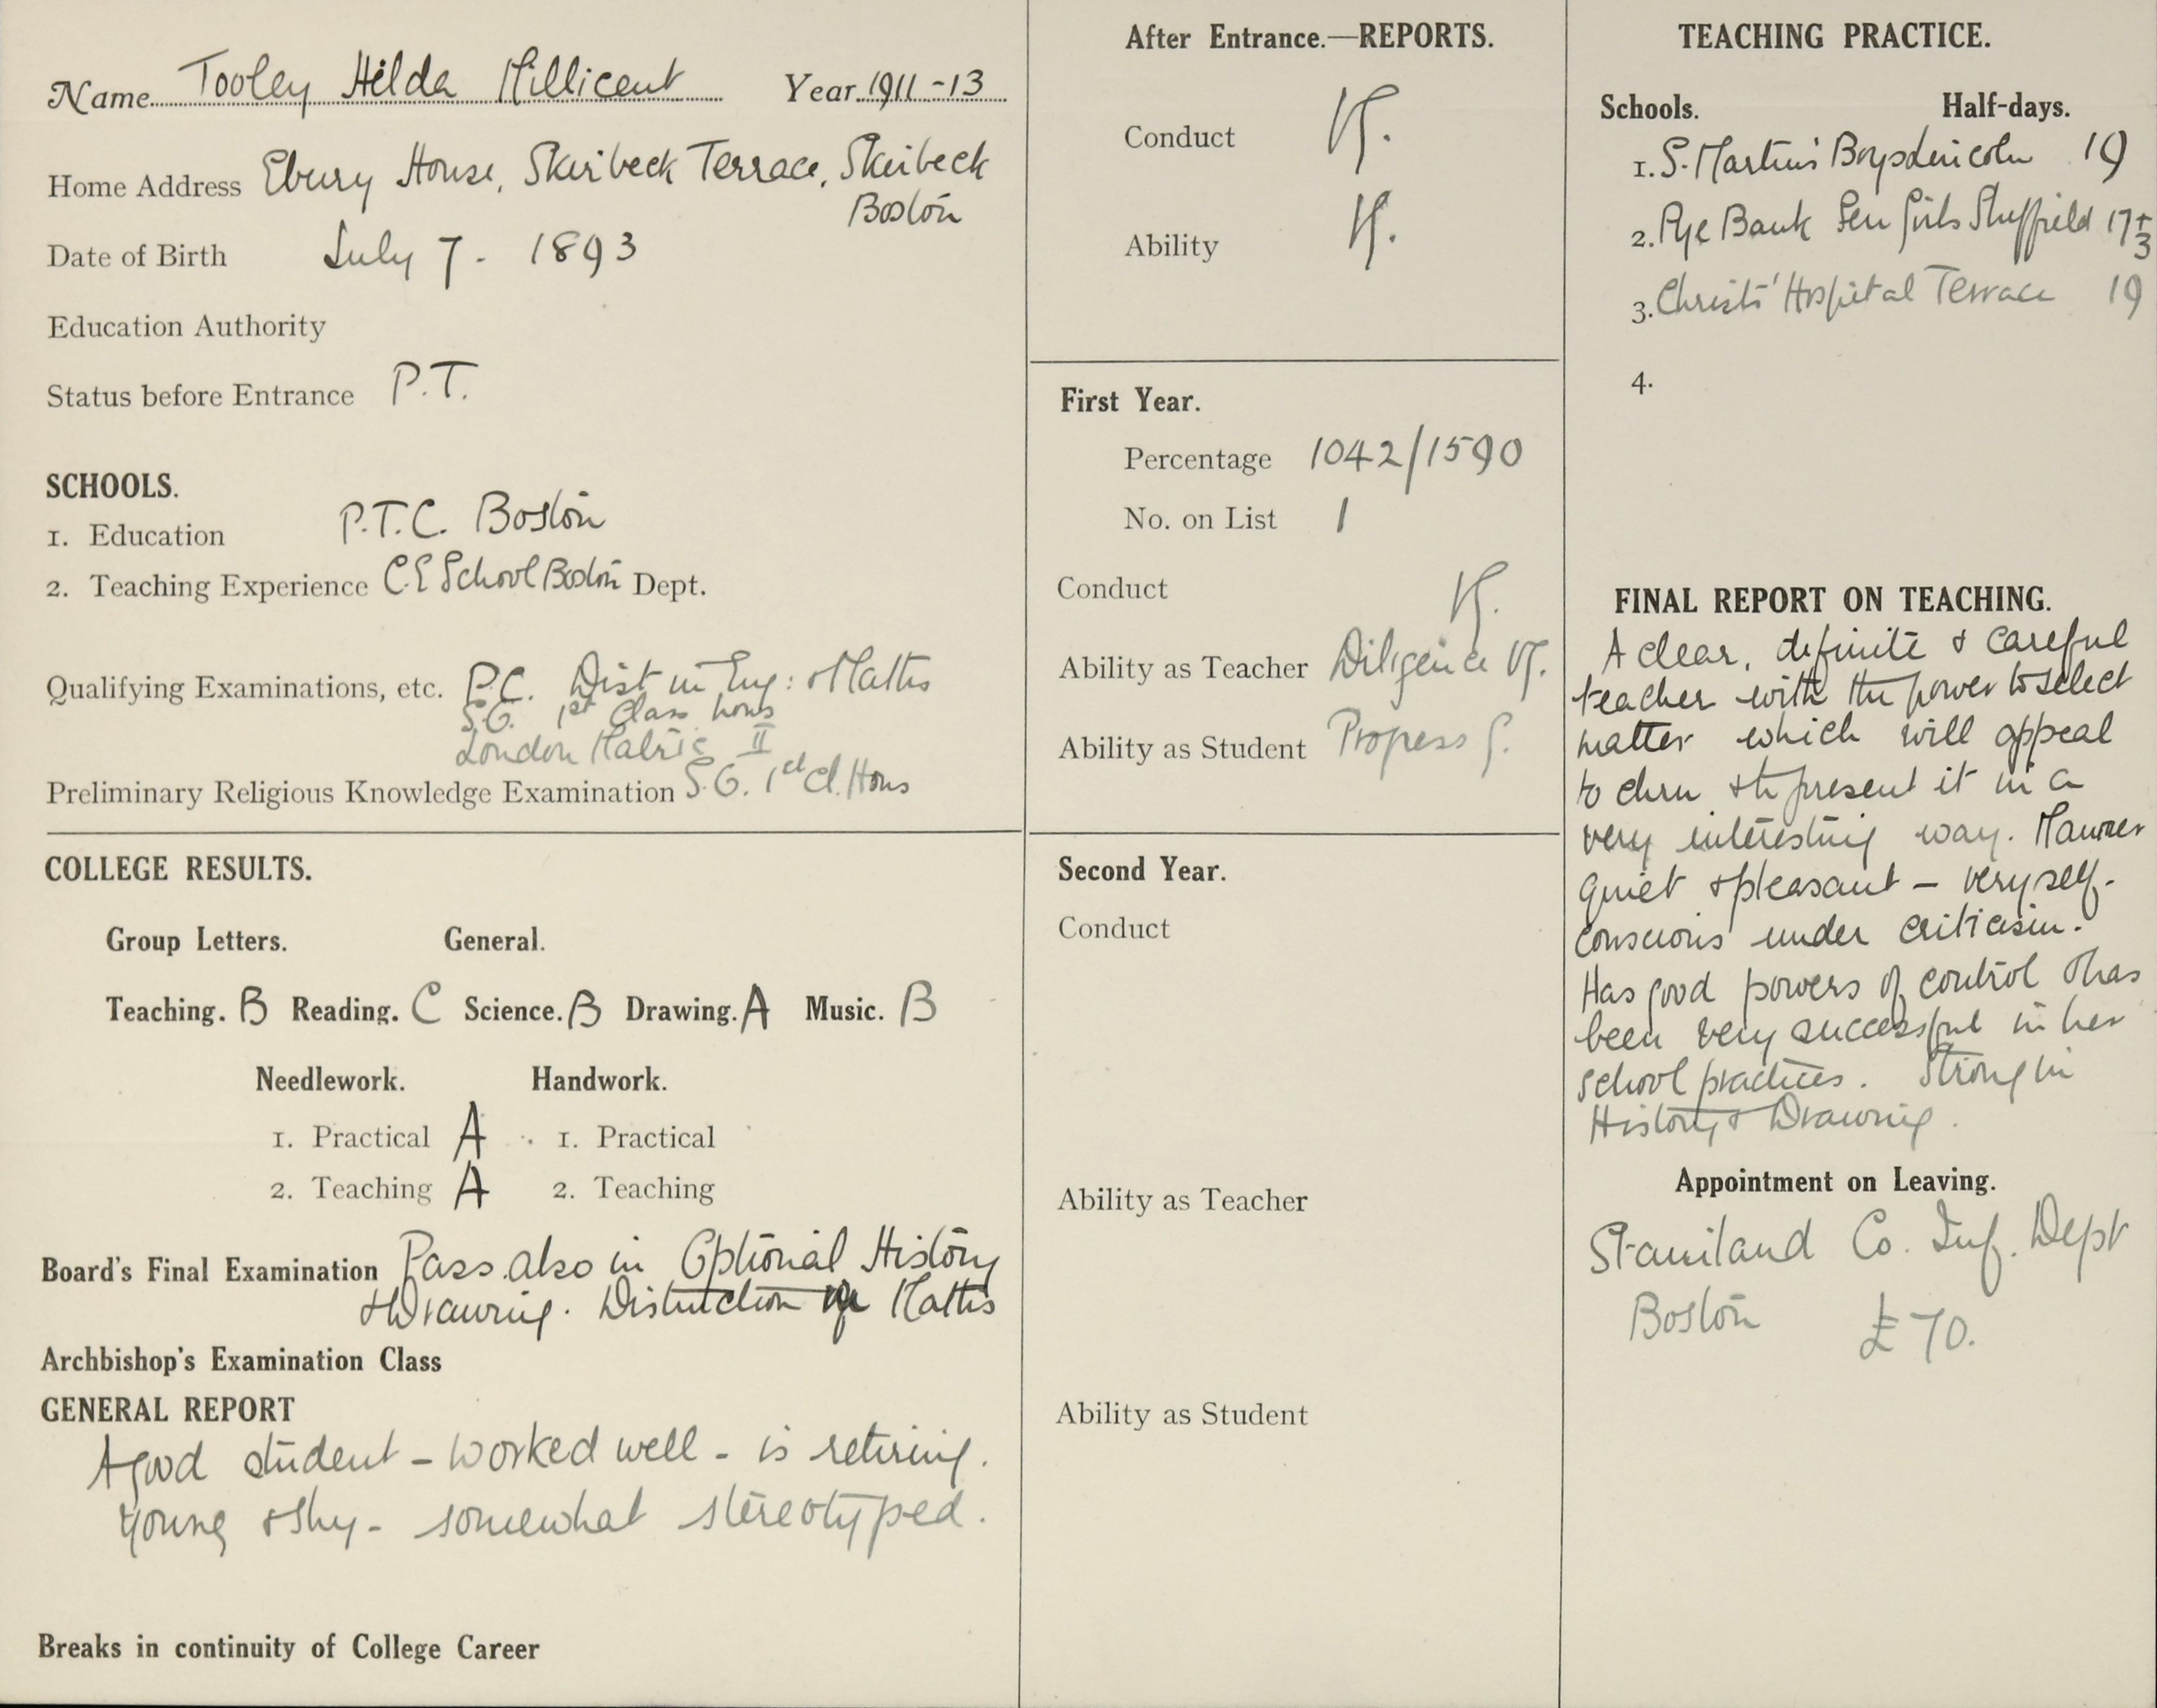 Name Tooley Hilda Millicent Year 1911-13
Home Address Ebury House, Skirbeck Terrace, Skirbeck
Boston
Date of Birth July 7 - 1893
Education Authority
Status before Entrance P.T.
SCHOOLS.
1. Education P.T.C. Boston
2. Teaching Experience C.E School Boston Dept.
Qualifying Examinations, etc. P.C. Dist in Eng: & Maths
S.G. 1st Class hons
London Matric II
Preliminary Religious Knowledge Examination S.G. 1st Cl. Hons
COLLEGE RESULTS.
Group Letters. General.
Teaching. B Reading. C Science. B Drawing. A Music. B
Needlework. Handwork.
1. Practical A 1. Practical
2. Teaching A 2. Teaching
Board's Final Examination Pass also in Optional History
& Drawing. Distinction in Maths
Archbishop's Examination Class
GENERAL REPORT
A good student - worked well - is retiring.
Young & shy - somewhat stereotyped.
Breaks in continuity of College Career
After Entrance.—REPORTS.
Conduct
Ability
First Year.
Percentage 1042/1590
No. on List 1
Conduct
Ability as Teacher Diligence VG.
Ability as Student Progress G.
Second Year.
Conduct
Ability as Teacher
Ability as Student
TEACHING PRACTICE.
Schools. Half-days.
1. S. Martin's Boys Lincoln 19
2. Pye Bank Sen Girls Sheffield 17 + 3
3. Christ's Hospital Terrace 19
4.
FINAL REPORT ON TEACHING.
A clear, definite & careful
teacher with the power to select
matter which will appeal
to chn & to present it in a
very interesting way. Manner
quiet & pleasant - very self-
conscious under criticism.
Has good powers of control & has
been very successful in her
school practices. Strong in
History & Drawing.
Appointment on Leaving.
Staniland Co. Inf. Dept
Boston £70.